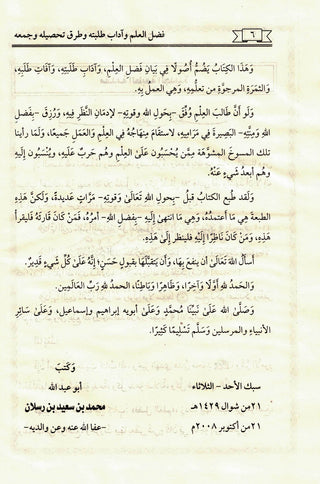 ٦ فضل العلم وآداب طلبته وطرق تحصيله وجمعه
وَهَذَا الكِتَابُ يَضُمُّ أُصُولًا فِي بَيَانِ فَضْلِ العِلْمِ، وَآدَابِ طَلَبَتِهِ، وَآفَاتِ طَلَبِهِ،
وَالثمَرَةِ المَرجوَّةِ من تعلُّمِهِ، وَهِي العملُ بِهِ.
وَلَو أَنَّ طَالِبَ العِلْمِ وُفِّقَ -بِحولِ اللهِ وقوتِهِ- لإدمَانِ النَّظَرِ فِيهِ، وَرُزِقَ -بِفَضلِ
اللهِ ومِنَّتِهِ- البَصِيرَةَ في مَرَامِيهِ، لاستَقَامَ مِنهَاجُهُ فِي العِلْمِ وَالعَمَلِ جَمِيعًا، وَلَمَا رأينا
تلك المسوخَ المشوَّهَةَ مِمَّن يُحْسَبُونَ عَلَىٰ العِلْمِ وَهُم حَربٌ عَلَيهِ، وَيُنْسَبُونَ إِلَيهِ
وَهُم أبعدُ شَيءٍ عَنْهُ.
وَلَقد طُبع الكتابُ قبلُ -بِحولِ اللهِ تَعَالَىٰ وَقوتِهِ- مَرَّاتٍ عَدِيدةً، وَلَكنَّ هَذِهِ
الطبعةَ هِي مَا أَعتمدُهُ، وَهِي مَا انتهىٰ إِلَيهِ -بِفضلِ اللهِ- أَمرُهُ، فَمَنْ كَانَ قَارِئَهُ فَليقرأ
هَذِهِ، وَمَنْ كَانَ نَاظِرًا إِلَيْهِ فلينظر إِلَىٰ هَذِهِ.
أَسأَلُ اللهَ تَعَالَىٰ أن ينفعَ بِهَا، وَأن يَتَقَبَّلَهَا بقبولٍ حَسَنٍ؛ إنَّهُ عَلَىٰ كُلِّ شَيءٍ قَدِيرٌ.
وَالحَمدُ للهِ أَوَّلًا وَآخِرًا، وَظَاهِرًا وَبَاطِنًا، الحمدُ للهِ رَبِّ العَالَمِين.
وَصَلَّىٰ اللهُ عَلَىٰ نَبِيِّنَا مُحَمَّدٍ وَعَلَىٰ أبويه إبراهيم وإسماعيل، وَعَلَىٰ سَائِرِ
الأنبياءِ والمرسلين وَسَلَّمَ تَسْلِيمًا كَثِيرًا.
وَكَتَبَ
سبك الأحد - الثلاثاء أبو عبد الله
٢١ من شوال ١٤٢٩هـ محمد بن سعيد بن رسلان
٢١ من أكتوبر ٢٠٠٨م -عفا الله عنه وعن والديه-